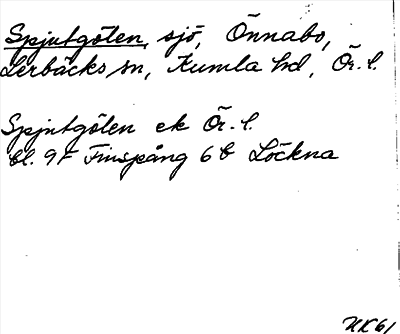 Spjutgölen, sjö, Önnabo,
Lerbäcks sn, Kumla hd, Ör. l.
Spjutgölen ek Ör. l.
bl. 9F Finspång 6b Löckna
NK61